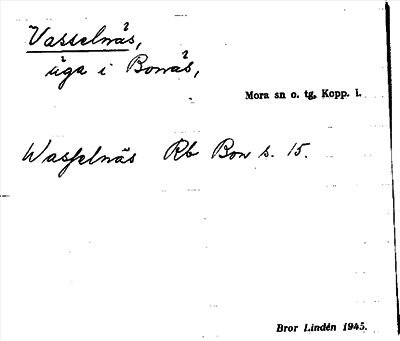 Vasselnäs,
äga i Bonäs,
Mora sn o. tg, Kopp. l.
Wasselnäs Rb Bon s. 15.
Bror Lindén 1945.